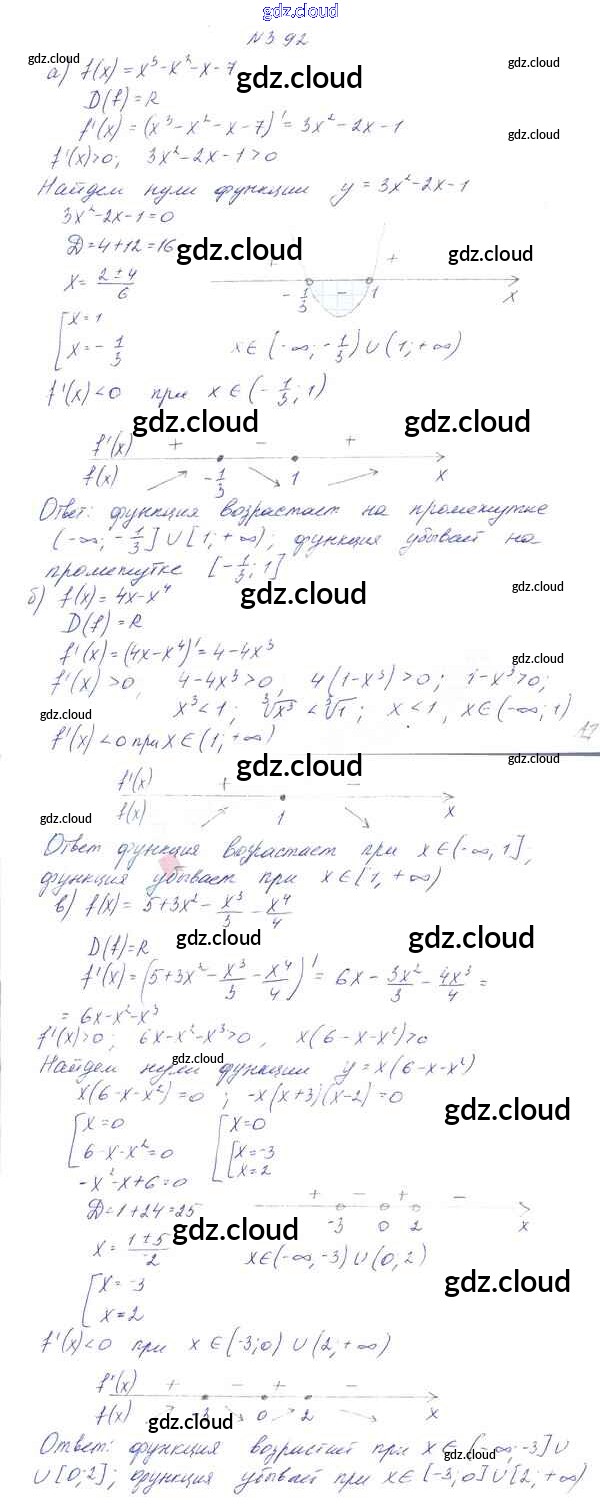 gdz.cloud
№392
gdz.cloud
а) f(x) = x³-x²-x-7
gdz.cloud
D(f) = R
gdz.cloud
f'(x) = (x³-x²-x-7)' = 3x²-2x-1
f'(x)>0; 3x²-2x-1>0
Найдем нули функции y = 3x²-2x-1
3x²-2x-1=0
Д=4+12=16
gdz.cloud
gdz.cloud
x = (2±4)/6
+ - +
-1/3 1 x
[x=1
x=-1/3
x∈(-∞;-1/3)∪(1;+∞)
f'(x)<0 при x∈(-1/3;1)
gdz.cloud gdz.cloud
f'(x) + - +
f(x) -1/3 1 x
Ответ: функция возрастает на промежутке
(-∞;-1/3]∪[1;+∞); функция убывает на
промежутке [-1/3;1]
gdz.cloud
gdz.cloud
б) f(x) = 4x-x⁴
D(f)=R
f'(x)=(4x-x⁴)'=4-4x³
gdz.cloud
f'(x)>0, 4-4x³>0; 4(1-x³)>0; 1-x³>0;
x³<1; ∛x³<∛1; x<1, x∈(-∞;1)
gdz.cloud
f'(x)<0 при x∈(1;+∞)
gdz.cloud
f'(x) + -
f(x) 1 x
gdz.cloud gdz.cloud
Ответ функция возрастает при x∈(-∞,1];
функция убывает при x∈[1,+∞)
в) f(x) = 5+3x²-x³/3-x⁴/4
gdz.cloud gdz.cloud
D(f)=R
f'(x)=(5+3x²-x³/3-x⁴/4)' = 6x-3x²/3-4x³/4 =
= 6x-x²-x³
f'(x)>0; 6x-x²-x³>0, x(6-x-x²)>0
gdz.cloud
Найдем нули функции y=x(6-x-x²)
x(6-x-x²)=0; -x(x+3)(x-2)=0
gdz.cloud
[x=0 [x=0
6-x-x²=0 [x=-3
x=2
-x²-x+6=0
Д=1+24=25
+ - + -
-3 0 2 x
gdz.cloud
x = (1±5)/-2
x∈(-∞,-3)∪(0,2)
[x=-3
x=2
gdz.cloud
f'(x)<0 при x∈(-3;0)∪(2;+∞)
f'(x) + - + -
f(x) -3 0 2 x
gdz.cloud gdz.cloud
Ответ: функция возрастает при x∈(-∞;-3]∪
gdz.cloud
∪[0;2]; функция убывает при x∈[-3;0]∪[2;+∞)